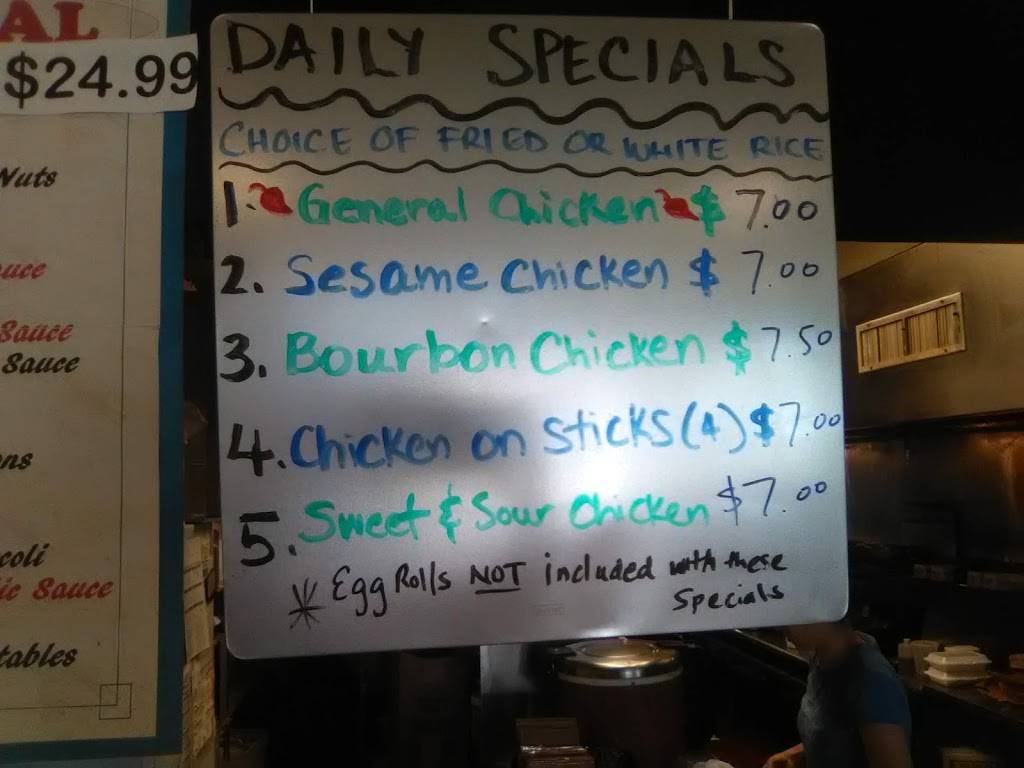 AL
$24.99
Nuts
Sauce
Sauce
coli
Sauce
DAILY SPECIALS
CHOICE OF FRIED OR WHITE RICE
1. General Chicken $ 7.00
2. Sesame Chicken $ 7.00
3. Bourbon Chicken $ 7.50
4. Chicken on Sticks (4) $7.00
5. Sweet & Sour Chicken $7.00
* Egg Rolls NOT included with these
Specials